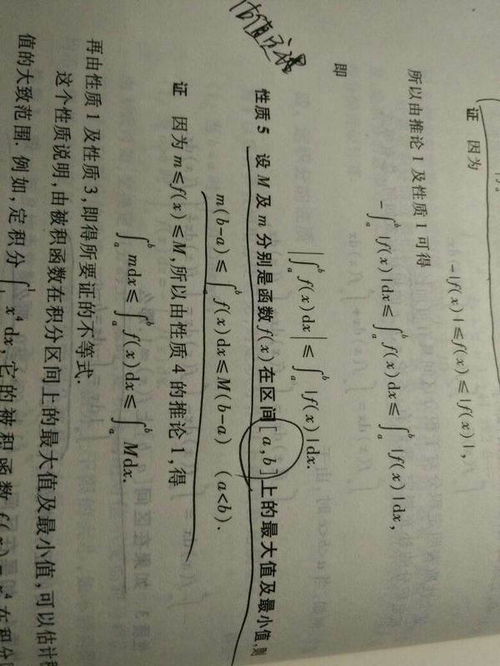 证 因为
-|f(x)|≤f(x)≤|f(x)|,
所以由推论1及性质1可得
-∫_a^b|f(x)|dx≤∫_a^b f(x)dx≤∫_a^b|f(x)|dx,
即
|∫_a^b f(x)dx|≤∫_a^b|f(x)|dx.
性质5 设M及m分别是函数f(x)在区间[a,b]上的最大值及最小值,则
m(b-a)≤∫_a^b f(x)dx≤M(b-a) (a<b).
证 因为m≤f(x)≤M,所以由性质4的推论1,得
∫_a^b mdx≤∫_a^b f(x)dx≤∫_a^b Mdx.
再由性质1及性质3,即得所要证的不等式.
这个性质说明,由被积函数在积分区间上的最大值及最小值,可以估计
值的大致范围.例如,定积分∫ x⁴dx,它的被积函数f(x)=x⁴在积分